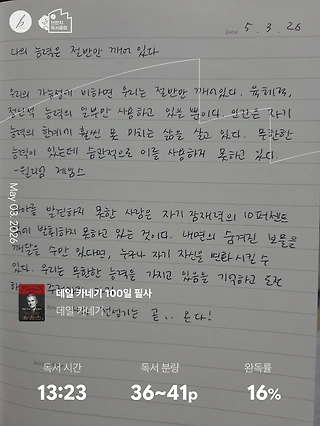 반만지
독서클럽
Date 5. 3. 26
나의 능력은 절반만 깨어 있다
우리의 가능성에 비하면 우리는 절반만 깨어있다. 육체적,
정신적 능력의 일부만 사용하고 있을 뿐이다. 인간은 자기
능력의 한계에 훨씬 못 미치는 삶을 살고 있다. 무한한
능력이 있는데 습관적으로 이를 사용하지 못하고 있다.
-윌리엄 제임스
자아를 발견하지 못한 사람은 자기 잠재력의 10퍼센트
발휘하지 못하고 있는 것이다. 내면의 숨겨진 보물을
깨달을 수만 있다면, 누구나 자기 자신을 변화시킬 수
있다. 우리는 무한한 능력을 가지고 있음을 기억하고 도전
May.03.2026
데일 카네기 100일 필사
데일 카네기
곧 .. 온다!
독서 시간 독서 분량 완독률
13:23 36~41p 16%